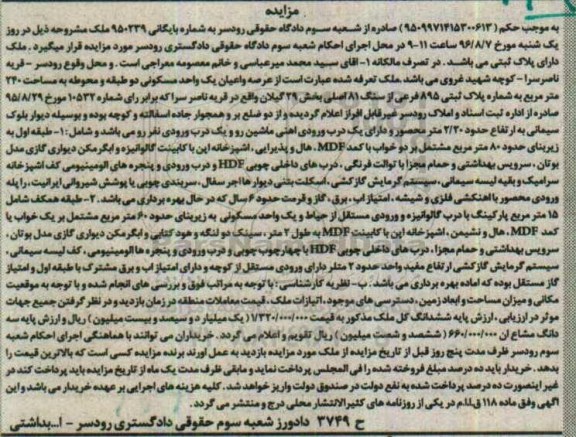 مزایده
به موجب حکم (۹۵۰۹۹۷۱۴۱۵۳۰۰۶۱۳) صادره از شعبه سوم دادگاه حقوقی رودسر به شماره بایگانی ۹۵۰۲۳۹ ملک مشروحه ذیل در روز
یک شنبه مورخ ۹۶/۸/۷ ساعت ۱۱-۹ در محل اجرای احکام شعبه سوم دادگاه حقوقی دادگستری رودسر مورد مزایده قرار میگیرد. ملک
دارای پلاک ثبتی می باشد. در تصرف مالکانه ۱- آقای سید محمد میرعباسی و خانم معصومه معراجی است. و محل وقوع رودسر – قریه
ناصرسرا – کوچه شهید غروی می باشد. ملک تعرفه شده عبارت است از عرصه واعیان یک واحد مسکونی دو طبقه و محوطه به مساحت ۲۴۰
متر مربع به شماره پلاک ثبتی ۸۹۵ فرعی از سنگ ۸۱ اصلی بخش ۲۹ گیلان واقع در قریه ناصر سرا که برابر رای شماره ۱۰۵۳۲ مورخ ۹۵/۸/۲۹
صادره از اداره ثبت اسناد و املاک رودسر غیرقابل افراز اعلام گردیده و از دو ضلع بر و همجوار جاده اسفالته و کوچه بوده و بوسیله دیوار بلوک
سیمانی به ارتفاع حدود ۲/۲۰ متر محصور و دارای یک درب ورودی آهنی ماشین رو و یک درب ورودی نفر رو می باشد و شامل: ۱- طبقه اول به
زیربنای حدود ۸۰ متر مربع مشتمل بر دو خواب با کمد MDF، هال و پذیرایی، آشپزخانه اپن با کابینت گالوانیزه و ابگرمکن دیواری گازی مدل
بوتان، سرویس بهداشتی و حمام مجزا با توالت فرنگی، درب های داخلی چوبی HDF و درب ورودی و پنجره های الومینیومی کف آشپزخانه
سرامیک و بقیه لیسه سیمانی، سیستم گرمایش گازکشی، اسکلت بتنی دیوارها اجر سفال، سربندی چوبی با پوشش شیروانی ایرانیت، راه پله
ورودی محصور با اهنکشی فلزی و شیشه، امتیاز اب، برق، گاز و قرمت حدود ۶ سال که در حال بهره برداری می باشد. ۲- طبقه همکف شامل
۱۵ متر مربع پارکینگ با درب گالوانیزه و ورودی مستقل از حیاط و یک واحد مسکونی به زیربنای حدود ۶۰ متر مربع مشتمل بر یک خواب با
کمد MDF، هال و نشیمن، آشپزخانه اپن با کابینت MDF به طول ۲ متر، سینک دو لنگه و هود کتابی و ابگرمکن دیواری گازی مدل بوتان،
سرویس بهداشتی و حمام مجزا، درب های داخلی چوبی HDF با چهارچوب چوبی و درب ورودی و پنجره ها الومینیومی، کف لیسه سیمانی،
سیستم گرمایش گازکشی ارتفاع مفید واحد حدود ۲ متر دارای ورودی مستقل از کوچه و دارای امتیاز اب و برق مشترک با طبقه اول و امتیاز
گاز مستقل بوده که آماده بهره برداری می باشد. ب- نظریه کارشناسی: با توجه به مراتب فوق و بررسی های انجام شده و با توجه به موقعیت
مکانی و میزان مساحت و ابعاد زمین، دسترسی های موجود، اتیازات ملک، قیمت معاملات منطقه در زمان بازدید و در نظر گرفتن جمیع جهات
موثر در ارزیابی، ارزش پایه ششدانگ کل ملک مذکور به قیمت ۷۳۲۰/۰۰۰/۰۰۰ ( یک میلیارد و سیصد و بیست میلیون) ریال و ارزش پایه سه
دانگ مشاع آن ۶۶۰/۰۰۰/۰۰۰ ( ششصد و شصت میلیون) ریال تقویم و اعلام می گردد. خریداران می توانند با هماهنگی اجرای احکام شعبه
سوم رودسر ظرف مدت پنج روز قبل از تاریخ مزایده از ملک مورد مزایده بازدید به عمل آورند برنده مزایده کسی است که بالاترین قیمت را
بدهد. خریدار باید ده درصد مبلغ فروخته شده را فی المجلس پرداخت نماید و مابقی ظرف مدت یک ماه از تاریخ مزایده باید پرداخت کند در
غیر اینصورت ده درصد پرداخت شده به نفع دولت در صندوق دولت واریز خواهد شد. کلیه هزینه های اجرایی بر عهده خریدار می باشد و این
آگهی وفق ماده ۱۱۸ ق.ا.م در یکی از روزنامه های کثیرالانتشار محلی درج و منتشر می گردد.
ح ۳۷۴۹ دادورز شعبه سوم حقوقی دادگستری رودسر – ا...بداشتی